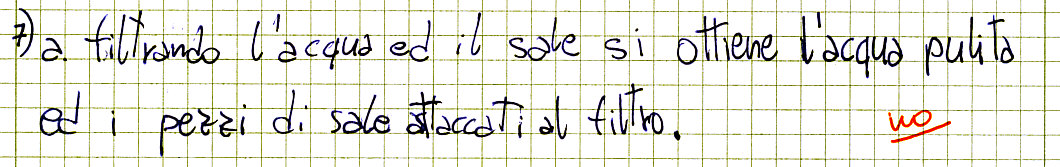 7) a. filtrando l'acqua ed il sale si ottiene l'acqua pulita
ed i pezzi di sale attaccati al filtro. no